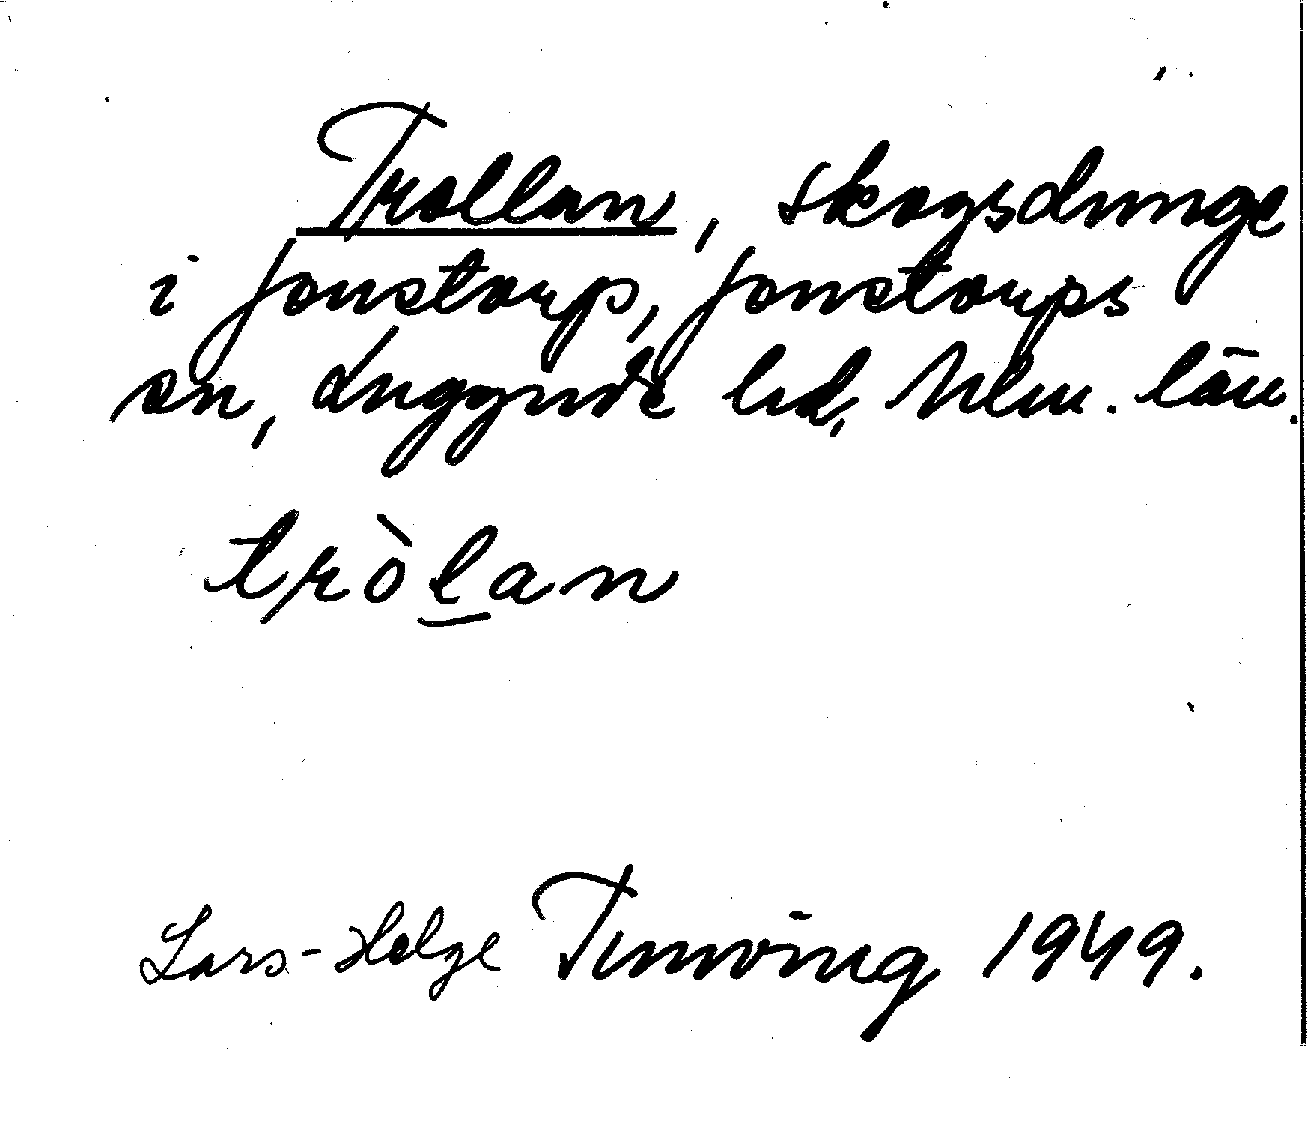 Trollan, skogsdunge
i Jonstorp, Jonstorps
sn, Luggude hd, Mlm. län.
tròlan
Lars-Helge 1949.